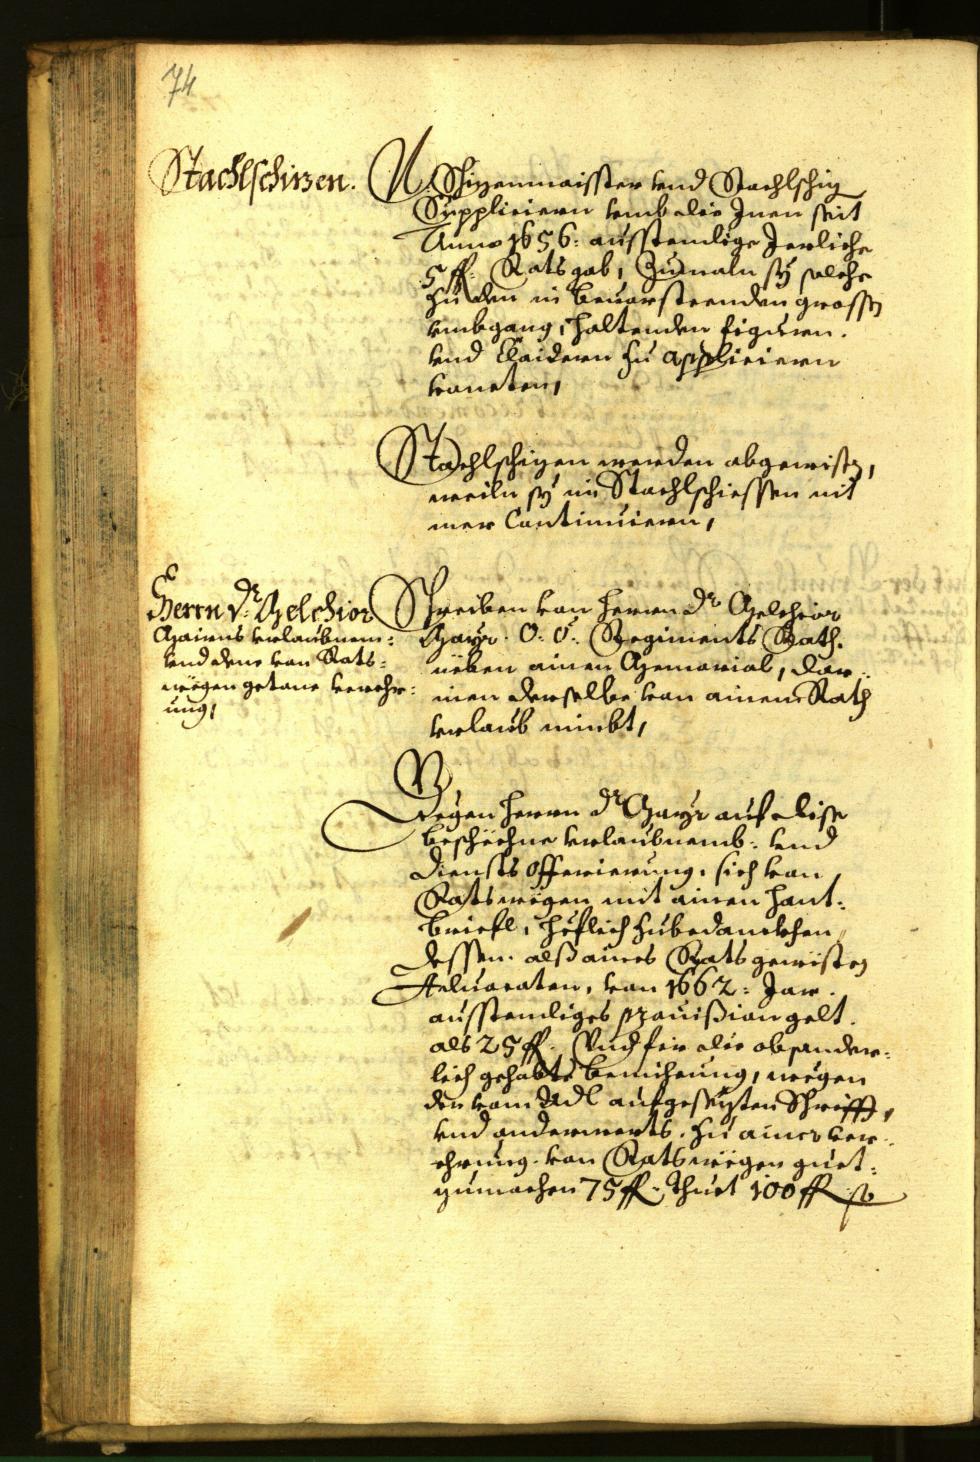 74
Stachlschizen.
N. Schizenmaisster vnd Stachlschiz
Supplicieren vmb die Jnen seit
Anno 1656: ausstendige Jerliche
5 ff. Ratsgab, Zumaln sy solche
zu den in beuorsteenden grossen
vmbgang, haltenden figuren.
vnd Claidern zu applicieren
konnten,
Stachlschizen werden abgewisen,
weiln sy im Stachlschiessen nit
mer Continuiern,
Herrn Dr: Melchior
Mairns vrlaubnem:
vnd deme von Rats-
wegen getone verehr:
ung,
Schreiben von herrn Dr Melchior
Mayr. O: Ö: Regiments Rath.
neben ainen Memorial, dar:
inen derselbe von ainem Rath
vrlaub nimbt,
Wegen herrn Dr Mayr auf dise
beschechne vrlaubnemb: vnd
diensts offerierung, sich von
Ratswegen mit ainen hant:
briefl, höflich zubedanckhen,
dessen. alß aines Rats gewisten
Aduocaten, von 1662: Jar.
ausstendiges prouision gelt.
als 25 ff. Vnd fir die obsonder:
lich gehabte bemiehung, wegen
der vom Adl aufgesezten Schrifft,
vnd anderwerts. zu ainer ver:
ehrung. von Ratswegen guet:
zumachen 75 ff. Thuet 100 ff so